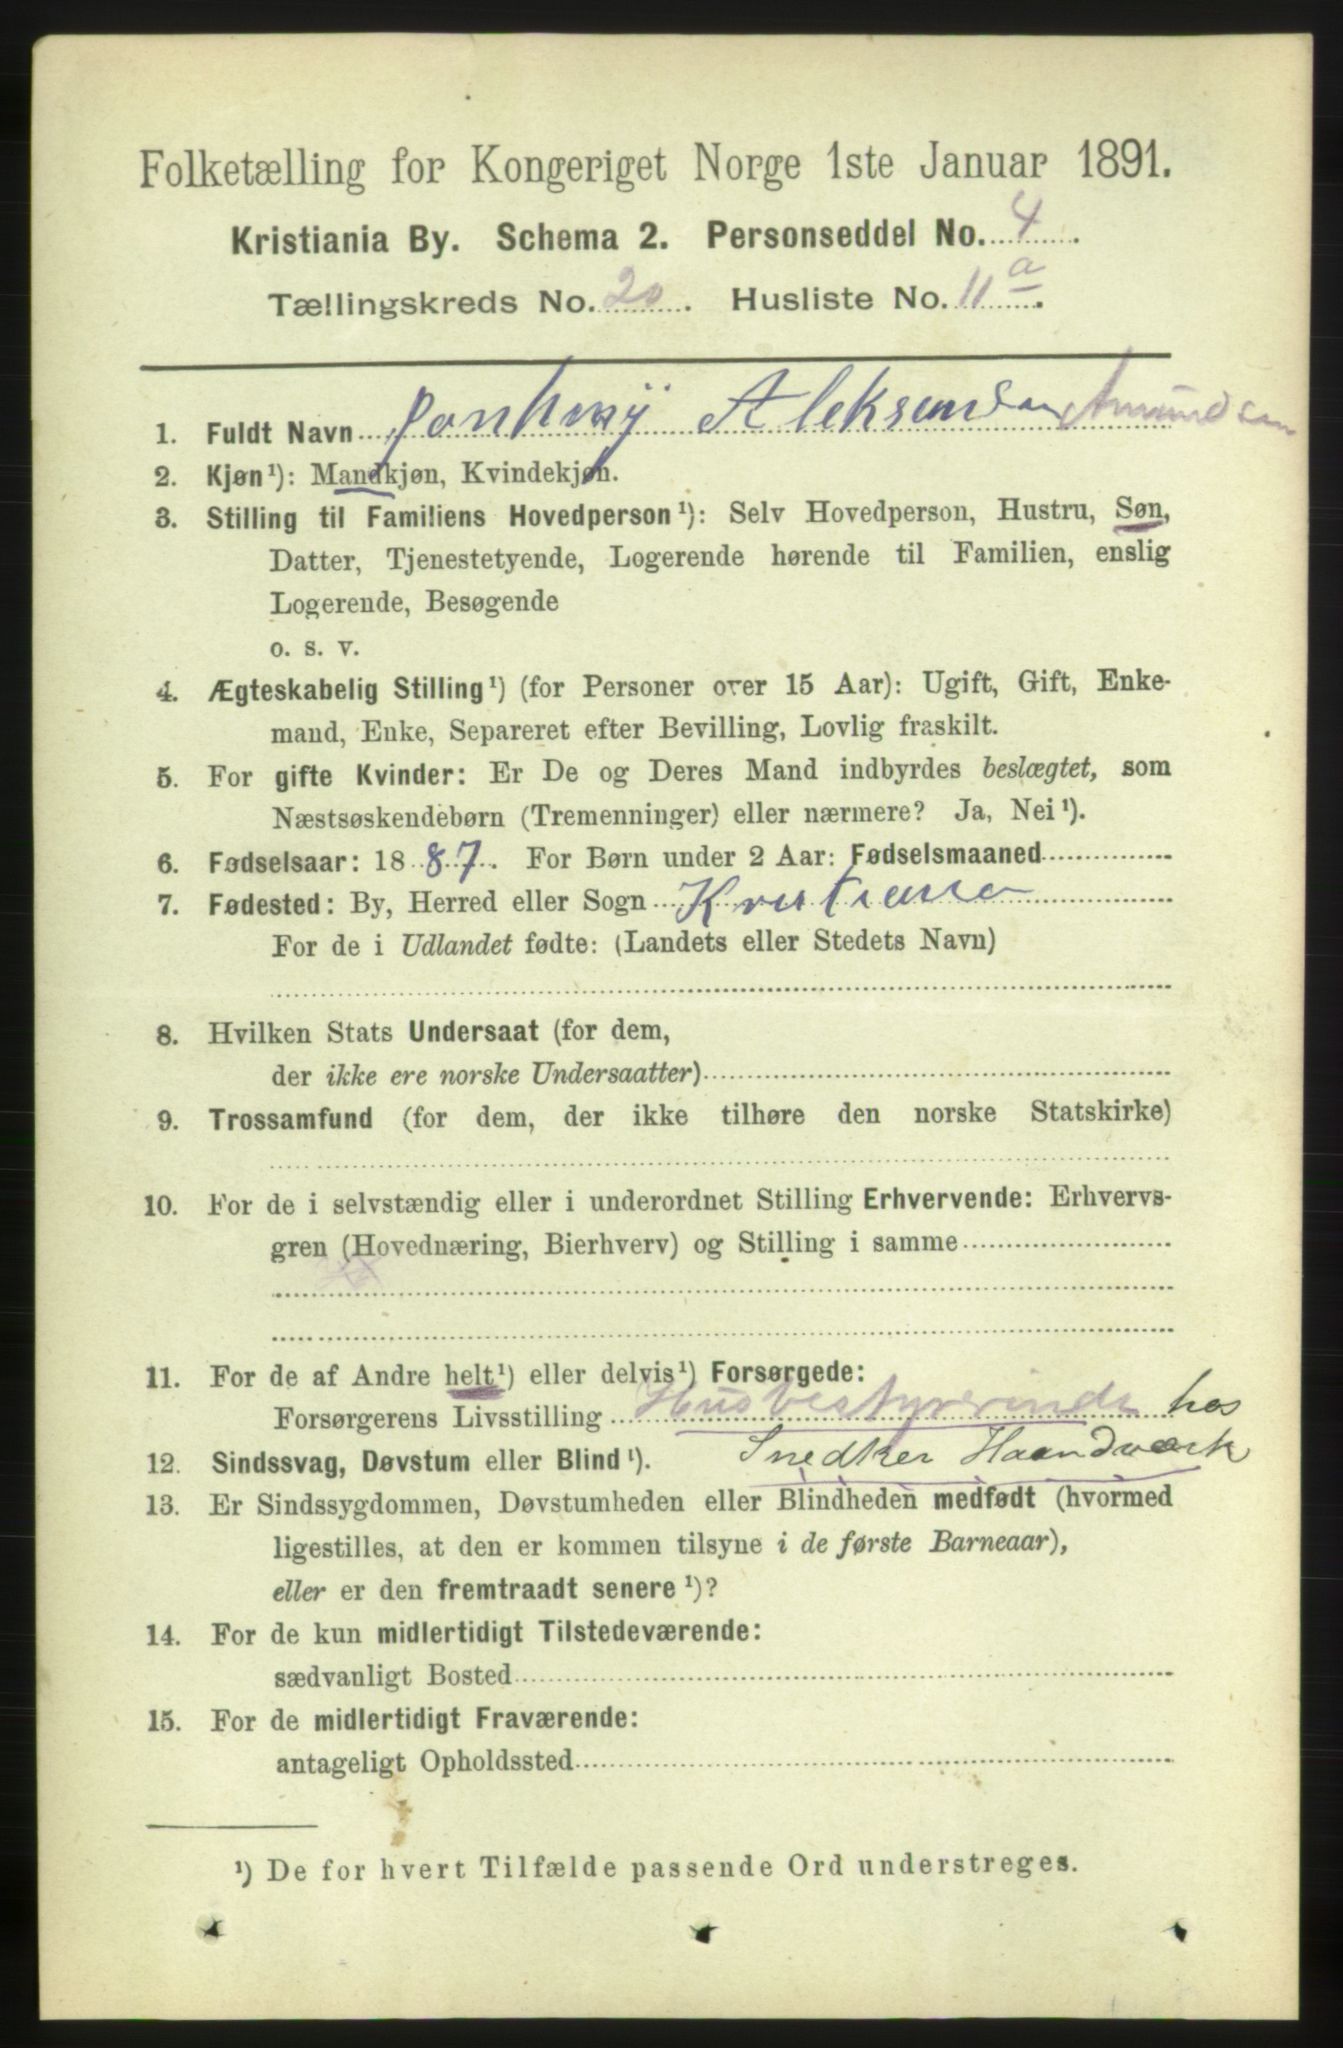 Folketælling for Kongeriget Norge 1ste Januar 1891.
Kristiania By. Schema 2. Personseddel No. 4.
Tællingskreds No. 20. Husliste No. 11a.
1. Fuldt Navn Aleksander Amundsen
2. Kjøn¹): Mandkjøn, Kvindekjøn.
3. Stilling til Familiens Hovedperson¹): Selv Hovedperson, Hustru, Søn,
Datter, Tjenestetyende, Logerende hørende til Familien, enslig
Logerende, Besøgende
o. s. v.
4. Ægteskabelig Stilling¹) (for Personer over 15 Aar): Ugift, Gift, Enke-
mand, Enke, Separeret efter Bevilling, Lovlig fraskilt.
5. For gifte Kvinder: Er De og Deres Mand indbyrdes beslægtet, som
Næstsøskendebørn (Tremenninger) eller nærmere? Ja, Nei¹).
6. Fødselsaar: 1887. For Børn under 2 Aar: Fødselsmaaned
7. Fødested: By, Herred eller Sogn Kristiania
For de i Udlandet fødte: (Landets eller Stedets Navn)
8. Hvilken Stats Undersaat (for dem,
der ikke ere norske Undersaatter)
9. Trossamfund (for dem, der ikke tilhøre den norske Statskirke)
10. For de i selvstændig eller i underordnet Stilling Erhvervende: Erhvervs-
gren (Hovednæring, Bierhverv) og Stilling i samme
11. For de af Andre helt¹) eller delvis¹) Forsørgede:
Forsørgerens Livsstilling Husbestyrerinde hos
Snedker Haandværk
12. Sindssvag, Døvstum eller Blind¹).
13. Er Sindssygdommen, Døvstumheden eller Blindheden medfødt (hvormed
ligestilles, at den er kommen tilsyne i de første Barneaar),
eller er den fremtraadt senere¹)?
14. For de kun midlertidigt Tilstedeværende:
sædvanligt Bosted
15. For de midlertidigt Fraværende:
antageligt Opholdssted
¹) De for hvert Tilfælde passende Ord understreges.